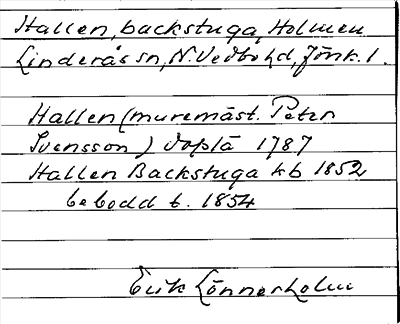 Hallen, backstuga, Holmen
Linderås sn, N. Vedbo hd, Jönk. l.
Hallen (muremäst. Peter
Svensson) dopla 1787
Hallen Backstuga kb 1852
bebodd t. 1854
Erik Lönnerholm